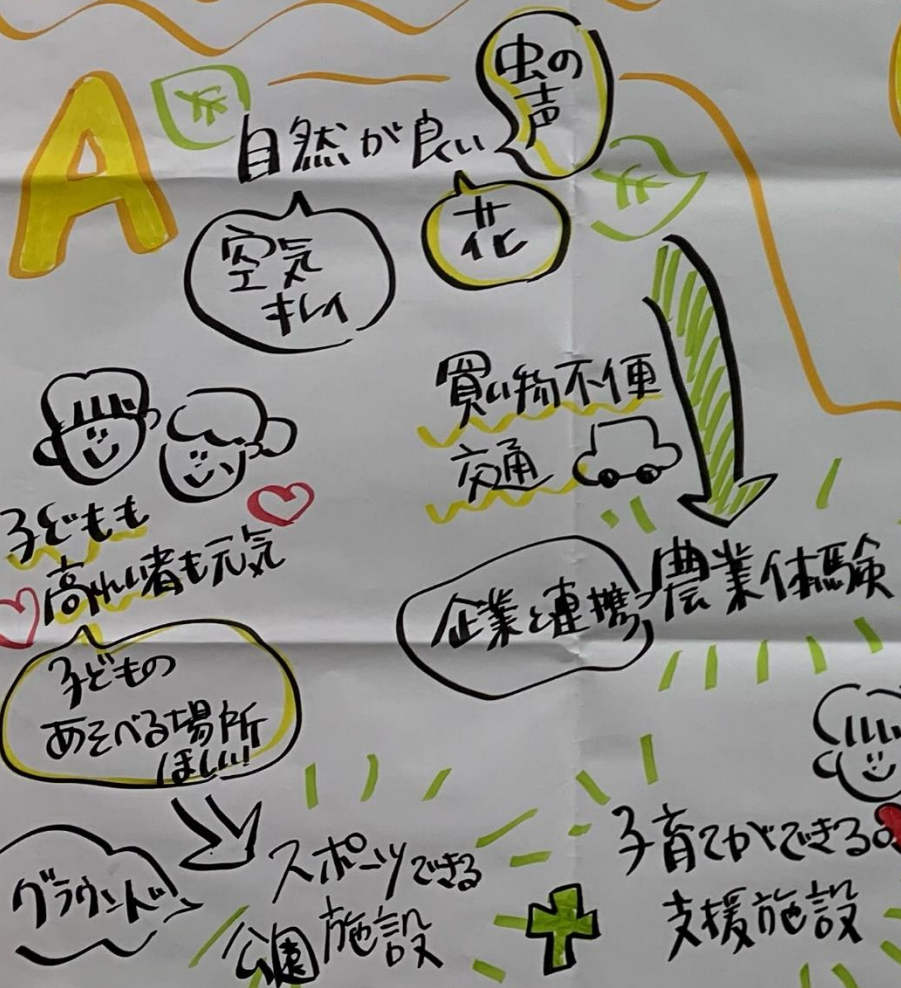 A
虫の
声
自然が良い
花
空気
キレイ
買い物不便
交通
子どもも
高れい者も元気
企業と連携
農業体験
子どもの
あそべる場所
ほしい!!
グラウンド
スポーツできる
公園施設
子育てができる
支援施設